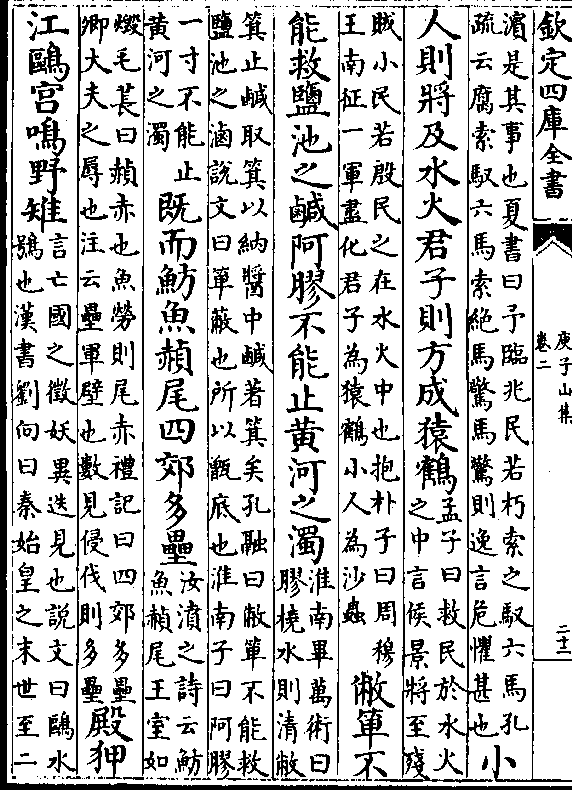 欽定四庫全書
庾子山集
卷二
二十二
濱是其事也夏書曰予臨兆民若朽索之馭六馬孔
疏云腐索馭六馬索絶馬驚馬驚則逸言危懼甚也
小
人則將及水火君子則方成猿鶴
孟子曰救民於水火
之中言侯景將至殘
賊小民若殷民之在水火中也抱朴子曰周穆
王南征一軍盡化君子為猿鶴小人為沙蟲
敝箄不
能救鹽池之鹹阿膠不能止黄河之濁
淮南畢萬術曰
膠橈水則清敝
箕止鹹取箕以納醬中鹹著箕矣孔融曰敝箄不能救
鹽池之滷說文曰箄蔽也所以甑底也淮南子曰阿膠
一寸不能止
黄河之濁
既而魴魚赬尾四郊多壘
汝濆之詩云魴
魚赬尾王室如
燬毛萇曰赬赤也魚勞則尾赤禮記曰四郊多壘
卿大夫之辱也注云壘軍壁也數見侵伐則多壘
殿狎
江鷗宮鳴野雉
言亡國之徵妖異迭見也說文曰鷗水
鴞也漢書劉向曰秦始皇之末世至二